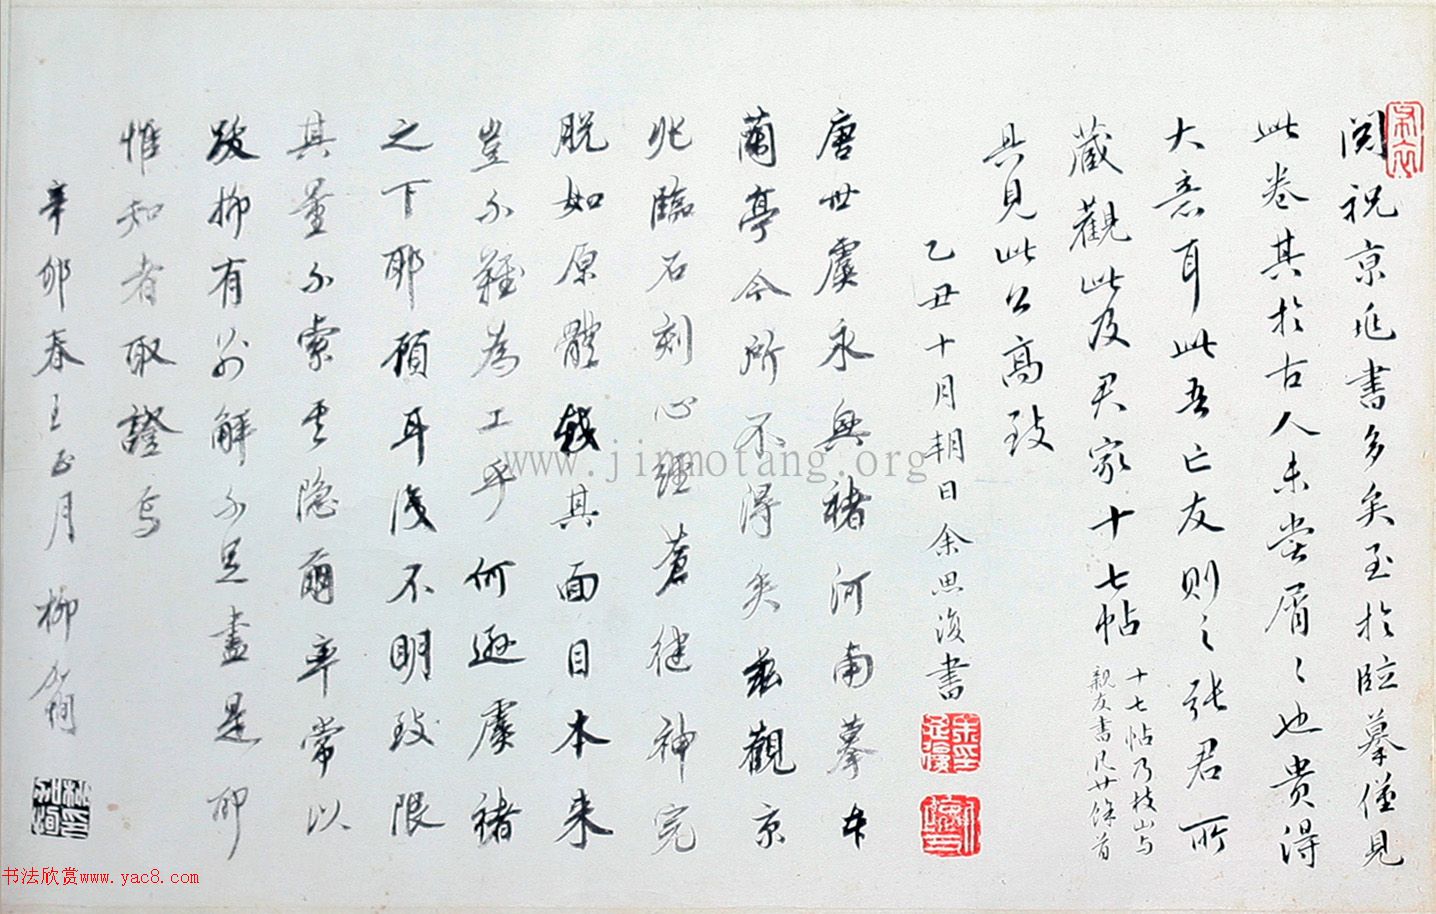 閱祝京兆書多矣至於臨摹僅見
此卷其於古人未嘗屑〻也貴得
大意耳此吾亡友則之張君所
藏觀此及尹家十七帖
十七帖乃枝山与
親友書凡廿餘首
具見此公高致
乙丑十月朝日余思復書
唐世虞永興褚河南摹本
蘭亭今所不得矣茲觀京
兆臨石刻心經蒼健神完
脫如原體就其面目本来
豈不難為工乎何遜虞褚
之下耶顧耳淺不明致限
其量不索其隐爾率常以
跋抑有別解不思盡是耶
惟知者取證焉
辛卯春王正月柳
www.jinmotang.org
书法欣赏www.yac8.com